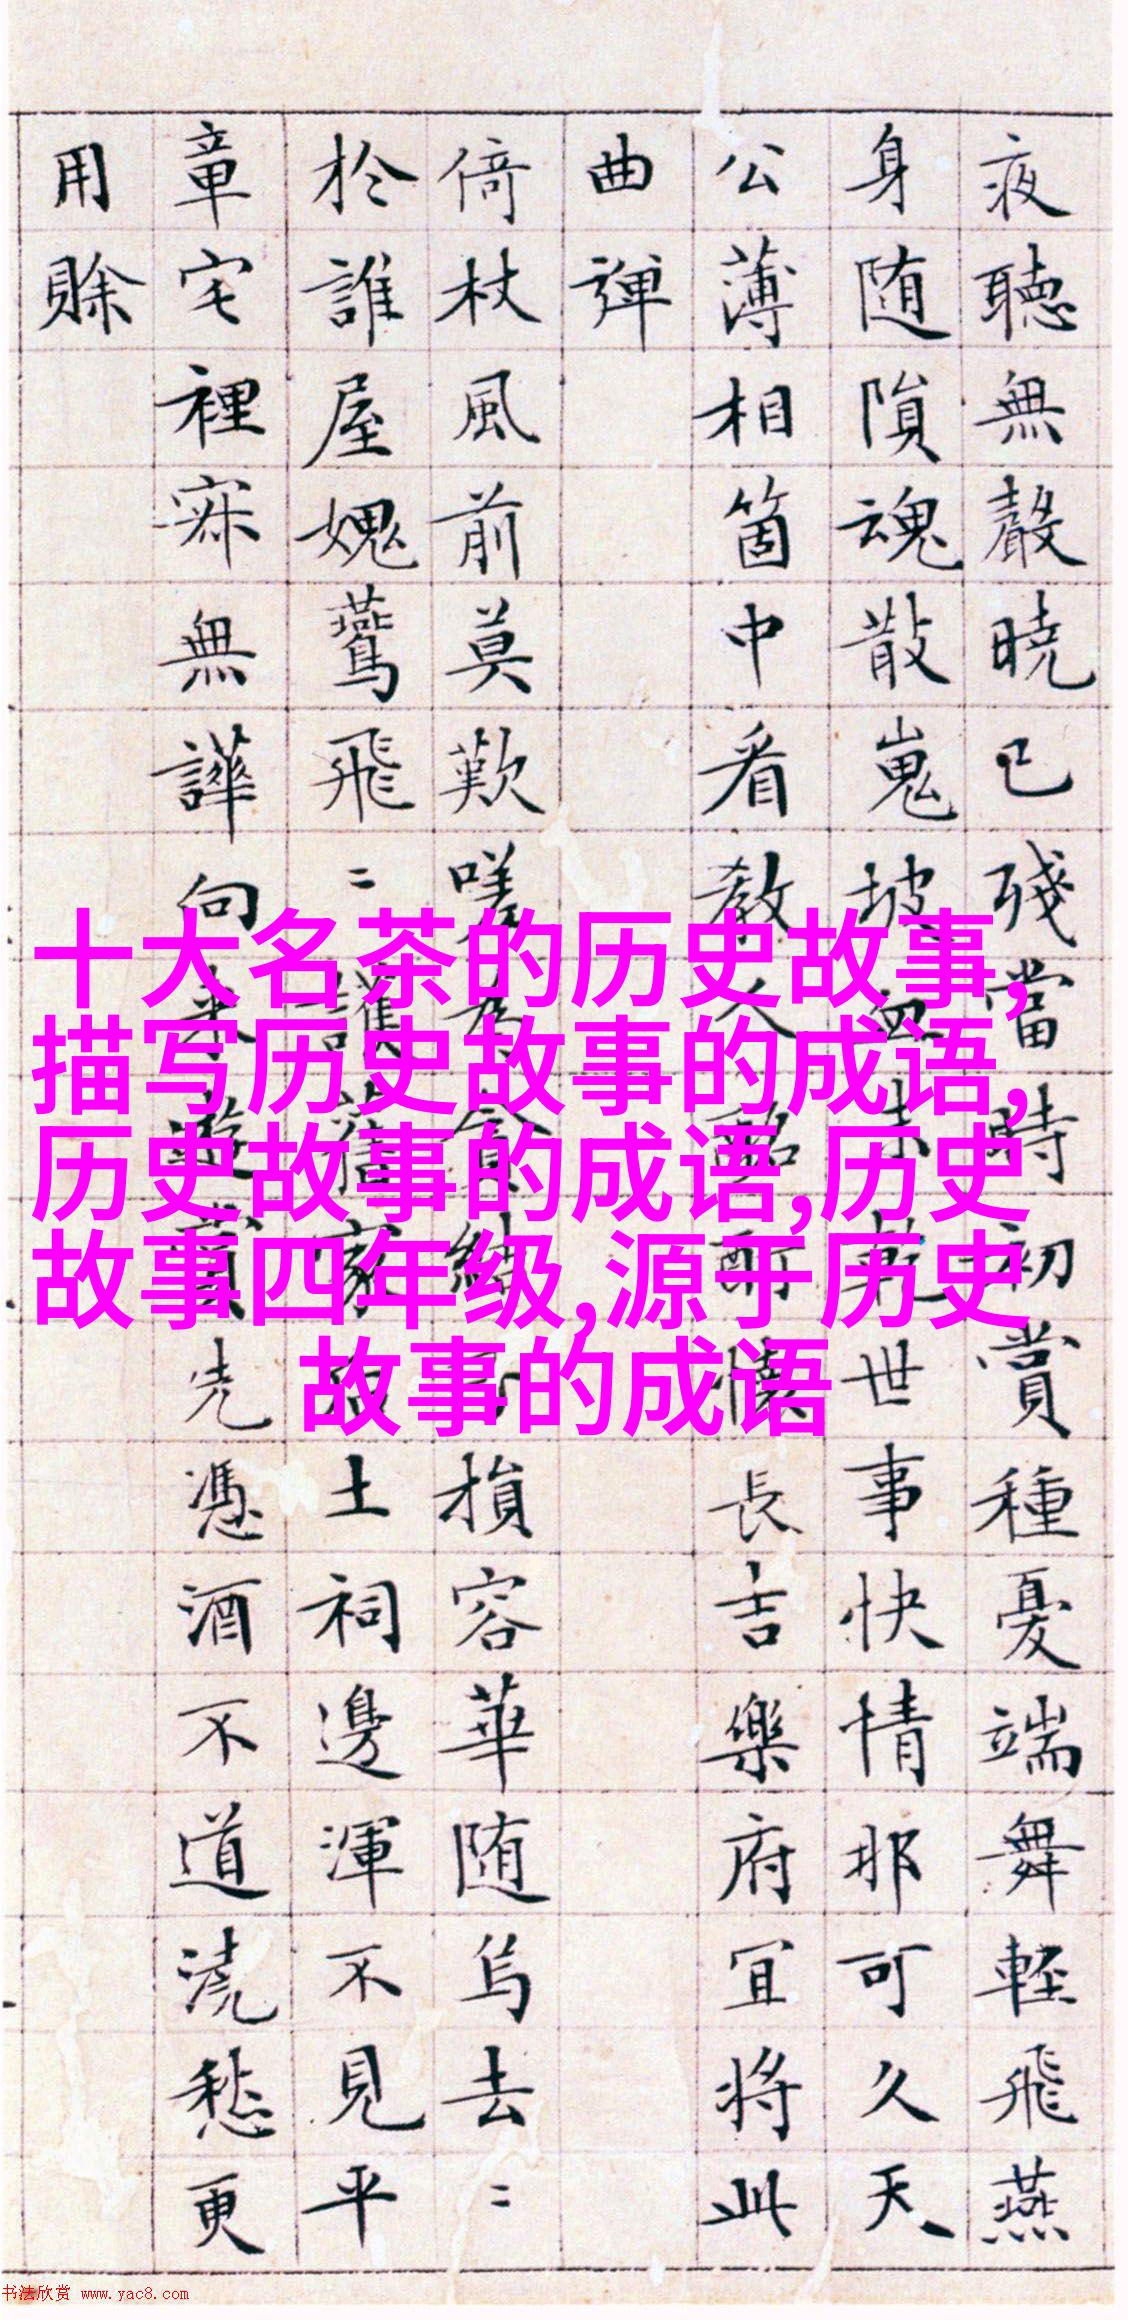 夜聽無聲曉已殘當時初賞種憂端舞輕飛燕
身随隕魂散嵬坡血未乾世事快情那可久天
公薄相箇中看教人酩酊懷長吉樂府冝将此
曲弾
倚杖風前莫歎嗟為貪結損容華随烏去〻
於誰屋媿鷰飛〻護舊家土祠邊渾不見平
章宅裡寂無譁向来遊賞先憑酒不道澆愁更
用賖
十大名茶的历史故事,
描写历史故事的成语,
历史故事的成语,历史
故事四年级,源于历史
故事的成语
书法欣赏 www.yac8.com